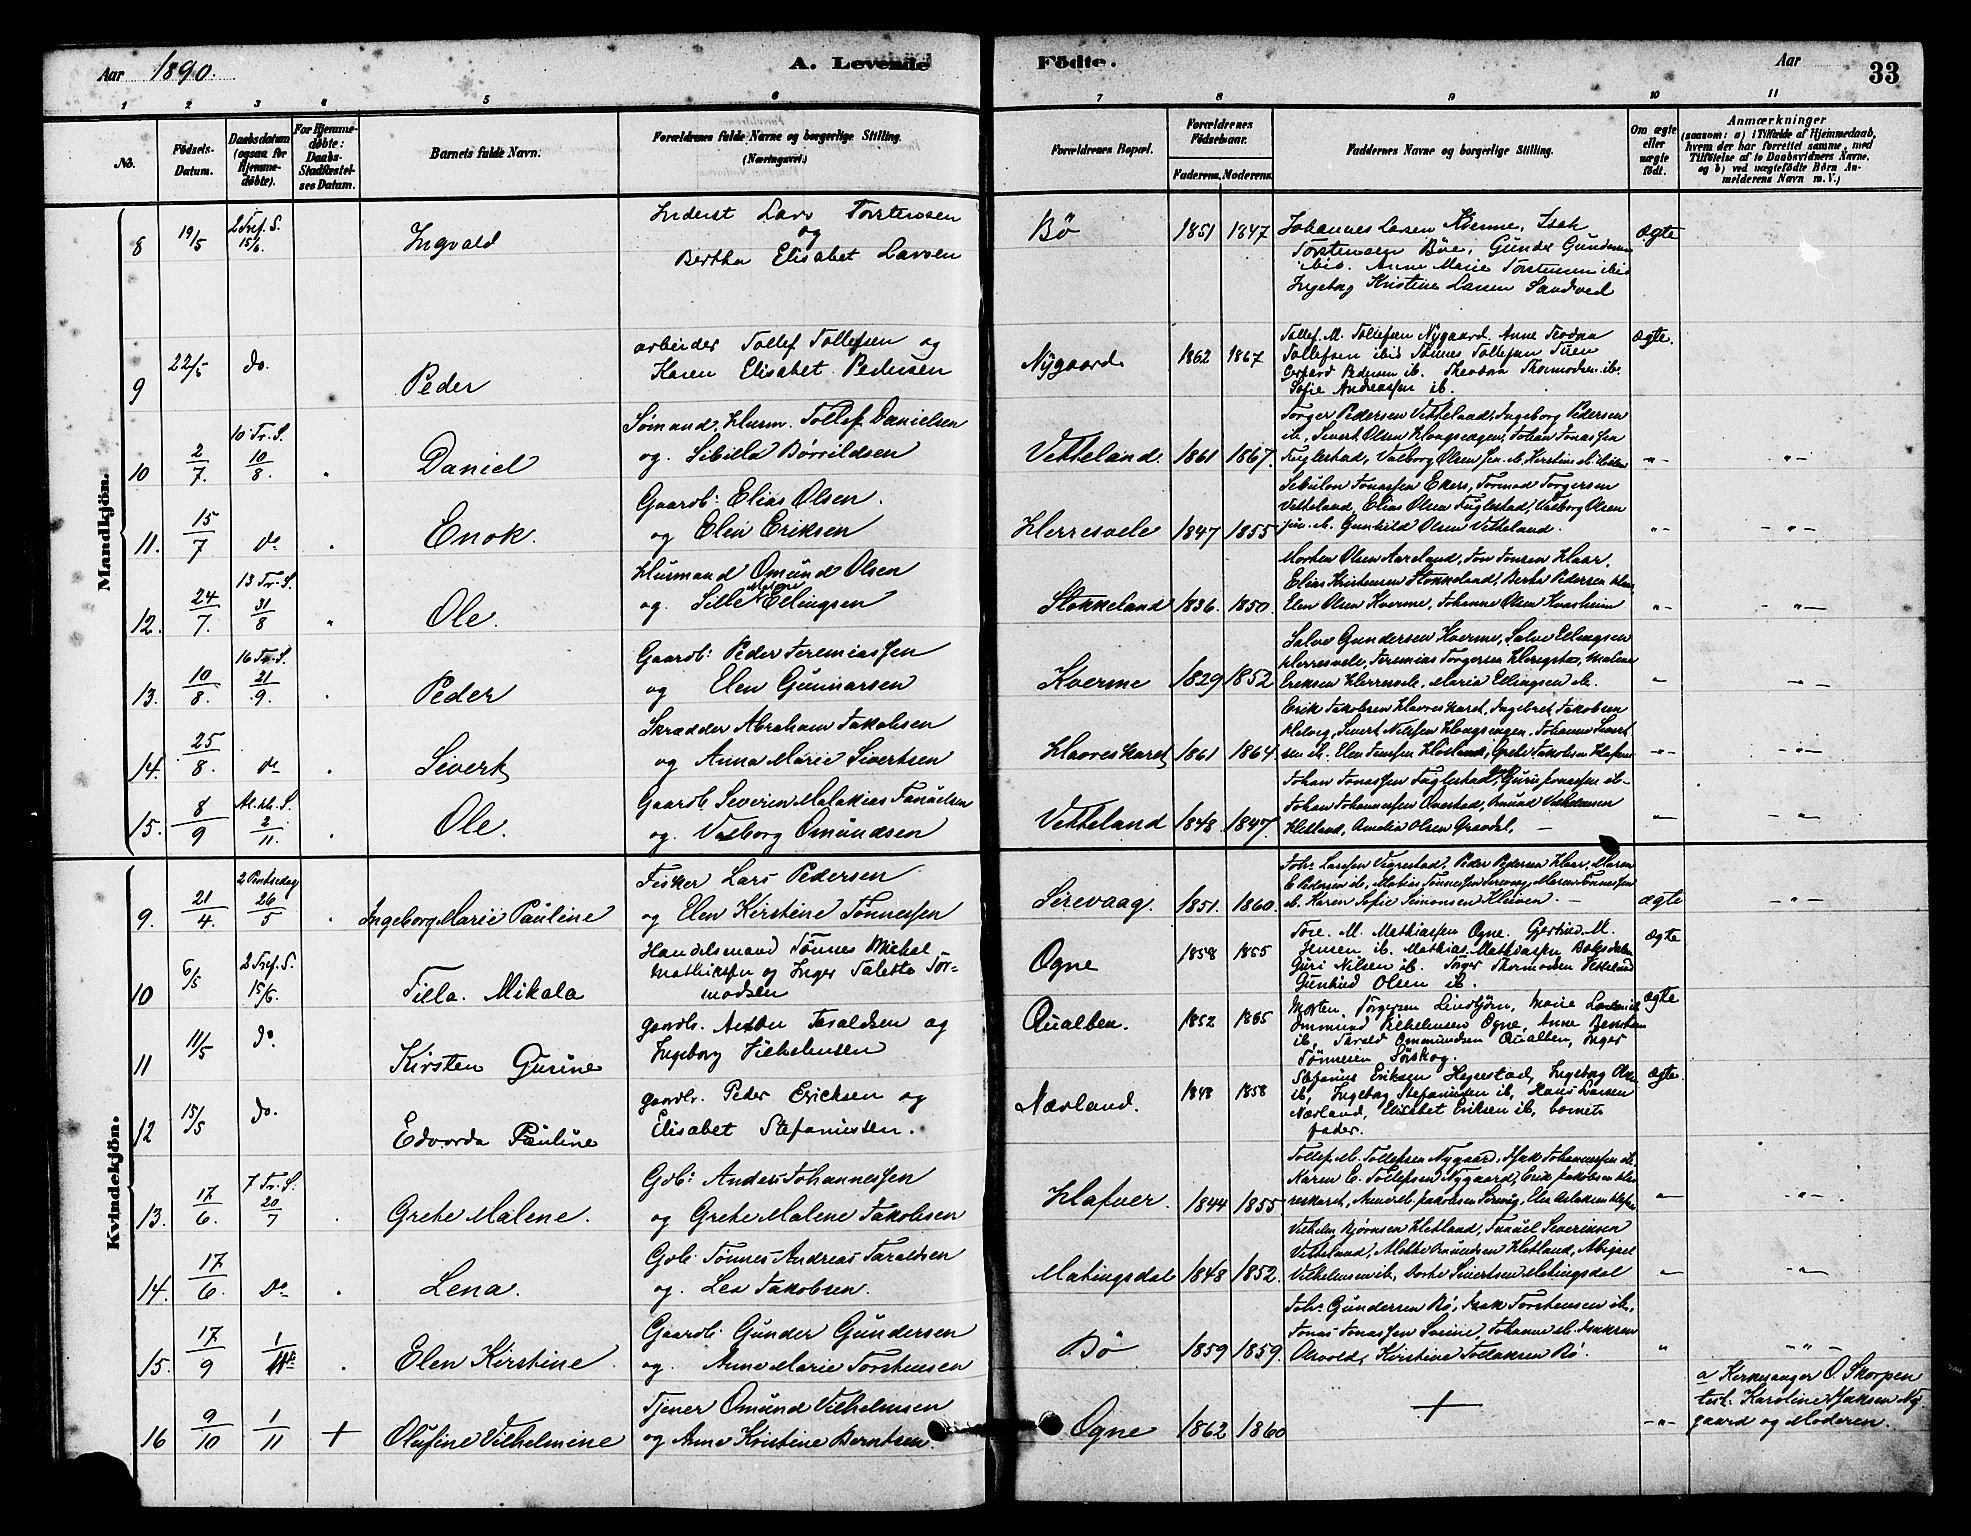 Aar 1890.
A. Levende Födte.
Aar
33
1 2 3 4 5 6 7 8 9 10 11
No.
Fødsels-Datum.
Daabsdatum (ogsaa for Hjemmedøbte).
For Hjemmedøbte: Daabs-Stadfæstelses Datum.
Barnets fulde Navn.
Forældrenes fulde Navne og borgerlige Stilling. (Næringsvei.)
Forældrenes Bopæl.
Forældrenes Fødselsaar. Faderens. Moderens.
Faddernes Navne og borgerlige Stilling.
Om ægte eller uægte født.
Anmærkninger (saasom: a) i Tilfælde af Hjemmedaab, hvem der har forrettet samme, med Tilføielse af to Daabsvidners Navne, og b) ved uægtefødte Børn Anmelderens Navn m. V.)
Mandkjön.
8 19/5 2 Tref. S. 15/6. Ingvald
Inderst Lars Torstensen
og
Bertha Elisabet Larsen
Bö 1851 1847
Johannes Larsen Kverme, Isak
Torstensen Böe, Gunder Gundersen
ibid. Anne Marie Torstensen ibid
Ingeborg Kristine Larsen Sandved
Ægte
9 22/5 do. Peder
arbeider Tollef Tollefsen og
Karen Elisabet Pedersen
Nygaard 1862 1867
Tollef M. Tollefsen Nygaard. Anne Teodora
Tollefsen ibid Tönnes Tollefsen
Pedersen ib. Theodora Thormodsen ib.
Sofie Andreassen ib.
Ægte.
10 2/7. 10 Tr. S. 10/8. " Daniel
Sömand, Husm. Tollef Danielsen
og Sibilla Börrildsen
Vetteland. 1861 1867.
Torger Pedersen Vetteland, Ingeborg Pedersen
ib, Sivert Olsen Hongseagen, Johan Jonassen
Fuglestad, Valborg Olsen
-"- "-
11. 15/7 do . Enok.
Gaardb: Elias Olsen.
og Elen Eriksen
Herresvele 1847 1855
Sebulon Jonassen Ekers, Tormod Torgersen
Vetteland, Elias Olsen Fuglestad, Valborg Olsen
jun. ib. Gunhild Olsen Vetteland.
"- -"-
12. 24/7. 13 Tr. S. 31/8 " Ole.
Husmand Omund Olsen
og Sille Malene Edlingsen
Stokkeland 1836. 1850.
Morten Olsen Aareland, Jon Jonsen Haar,
Elias Kristensen Stokkeland, Berte Pedersen
Elen Olsen Kverme, Johanne Olsen Kvasheim
"- -"-
13. 10/8. 16 Tr. S. 21/9. . Peder
Gaardb: Peder Jeremiassen
og Elen Gunnarsen
Kverme 1829 1852
Salve Gundersen Kverme, Salve Edlingsen
Herresvele, Jeremias Torgersen Malene
Eriksen Herresvele, Maria Edlingsen ib.
"- -"-
14. 25/8. do . Sivert
Skrædder Abraham Jakobsen
og Anna Marie Sivertsen
Haaveskaret 1861 1864.
Erik Jakobsen Haaveskaret, Ingebret Jakobsen
Sivert Nilsen Hongseagen, Johanne Sivert
sen ib. Elen Jensen Grete Jakobsen
-"- -"-
15. 8/9 Al. H. S. 2/11. . Ole.
Gaardb. Severin Malakias Tanuelsen
og. Valborg Omundsen
Vetteland 1848. 1847.
Johan Jonassen Fuglestad, Guri Jonassen ib-
Johan Johannessen Omund Vilhelmsen
Hetland, Amalia Olsen Grøvdal, -
"- -"-
Kvindekjön.
9. 21/4. 2 Pintsedag 26/5 . Ingeborg Marie Pauline
Fisker Lars Pedersen
og Elen Kirstine Tönnessen
Sirevaag. 1851. 1860.
Johs Larssen Vigrestad, Peder Pedersen Haar, Maren
Pedersen ib, Matias Tönnessen Sirevaag, Maren Tönnessen
ib. Karen Sofie Simonsen
Ægte -"-
10 6/5 2 Tref. S. 15/6. Tilla. Mikala
Handelsmand Tönnes Mikal
Mathiassen og Inger Talette Tor-
modsen
Ogne 1858 1855
Tore M. Mathiassen Ogne. Gjertine M.
Jensen ib. Mathias Mathiassen
Guri Nilsen ib. Torger Thormodsen Vetteland
Gunhild Olsen ib.
Ægte
11 11/5 do. Kirsten Gurine
gaardbr. Taraldsen og
Ingeborg Vilhelmsen
Qualben. 1852 1865
Morten Torgersen Lindtjörn, Marie
Ommund Vilhelmsen Ogne, Anne Berntsen
ib, Tarald Ommundsen Qualben, Inger
Tönnesen Sörskog.
Ægte
12 15/5 do. Edvarda Pauline
gaardbr. Peder Ericksen og
Elisabet Stefanussen.
Nærland. 1848 1858
Stefanus Eriksen Hegrestad, Ingeborg Olsen
ib, Ingeborg Stefanussen ib, Hans Larsen
Nærland, Elisabet Eriksen ib, barnets
fader.
Ægte.
13. 17/6. 7 Tr. S. 20/7 . Grete Malene.
Gdb: Anders Johannessen
og Grete Malene Jakobsen
Hafver. 1844 1855
Tollef M. Tollefsen Nygaard, Isak Johannessen ib.
Karen E. Tollefsen Nygaard, Erik Jakobsen
"- -"-.
14. 17/6. do . Lena.
Gdb. Tönnes Andreas Taraldsen
og. Lea Jakobsen.
Matingsdal 1848 1852.
Vilhelm Björnsen Hetland, Tanuel Severinsen
Vetteland, Mette Omundsen Hetland, Abigael
Vilhelmsen ib, Dorte Sivertsen Matingsdal
"- -"-
15. 17/9 1/11 . Elen Kirstine.
Gaardb. Gunder Gundersen
og. Anne Marie Torstensen
Bö 1859 1859.
Johs Gundersen Bö, Isak Torstensen ib.,
Jonas Jonassen Johanne M. Isaksen
Kirstine Tollaksen Bö.
" -"-
16 9/10 1/11 + Olufine Vilhelmine
Tjener Omund Vilhelmsen
og Anne Kristine Berntsen.
Ogne 1862 1860
+
-"-
a Kirkesanger O. Skorpen
test. Karoline Isaksen Ny
gaard og Moderen.